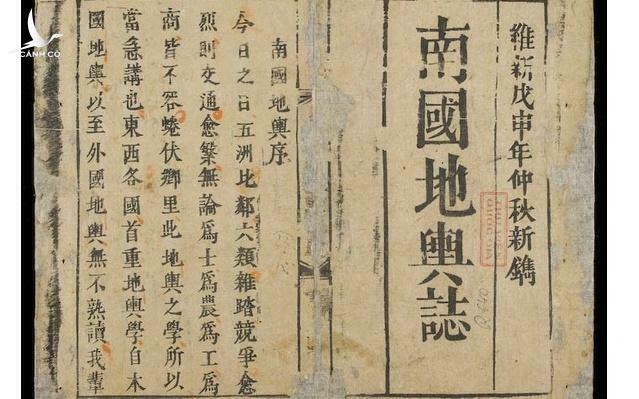 維新戊申年仲秋新鐫
南國地輿誌
南國地輿序
今日之日五洲比鄰六類雜踏競爭愈
烈則交通愈繁無論爲士爲農爲工爲
商皆不容蜷伏鄉里此地輿之學所以
當急講也東西各國首重地輿學自本
國地輿以至外國地輿無不熟讀我輩
CÁNH CÒ